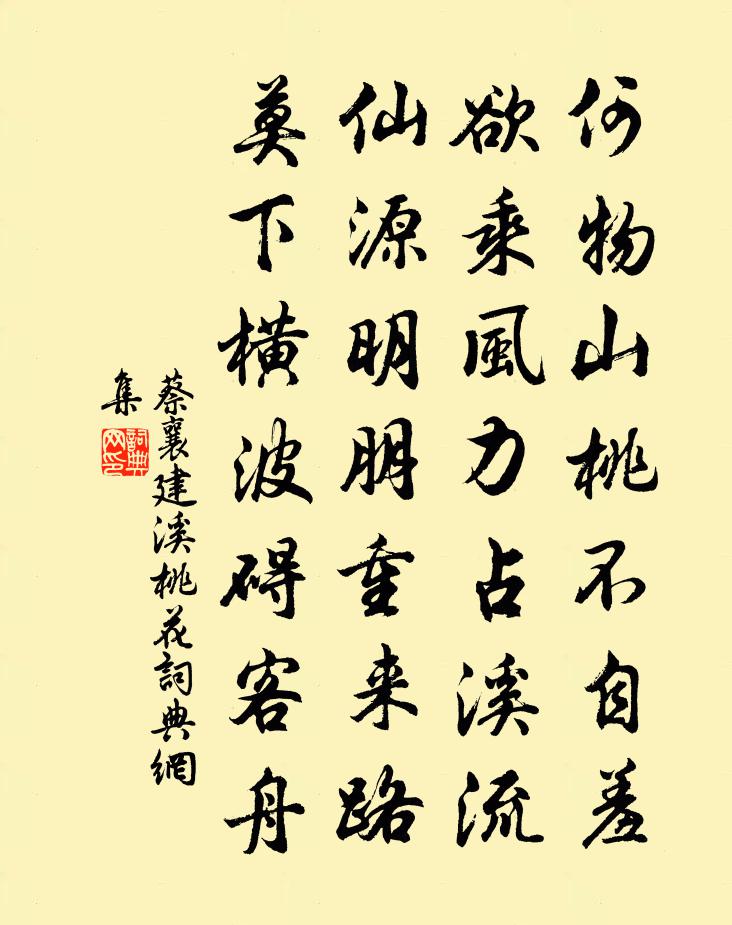 何物山桃不自羞
欲乘風力占溪流
仙源明朋重来路
莫下橫波碍客舟
蔡襄建溪桃花詞典網
集
詞典
网印